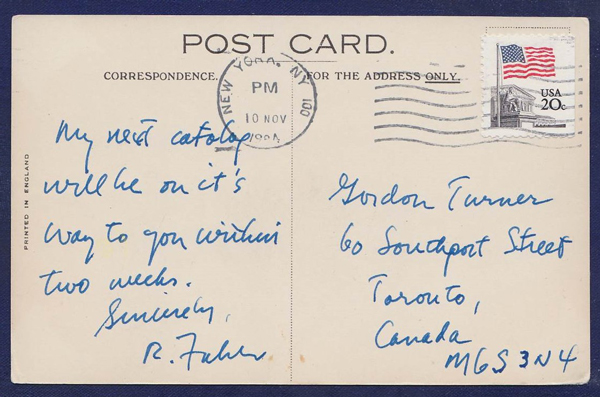 POST CARD.
CORRESPONDENCE.
FOR THE ADDRESS ONLY.
NEW YORK, NY 100
PM
10 NOV
1984
USA
20c
PRINTED IN ENGLAND
My next catalog
will be on it's
way to you within
two weeks.
Sincerely,
R.
Gordon Turner
60 Southport Street
Toronto,
Canada
M6S 3N4